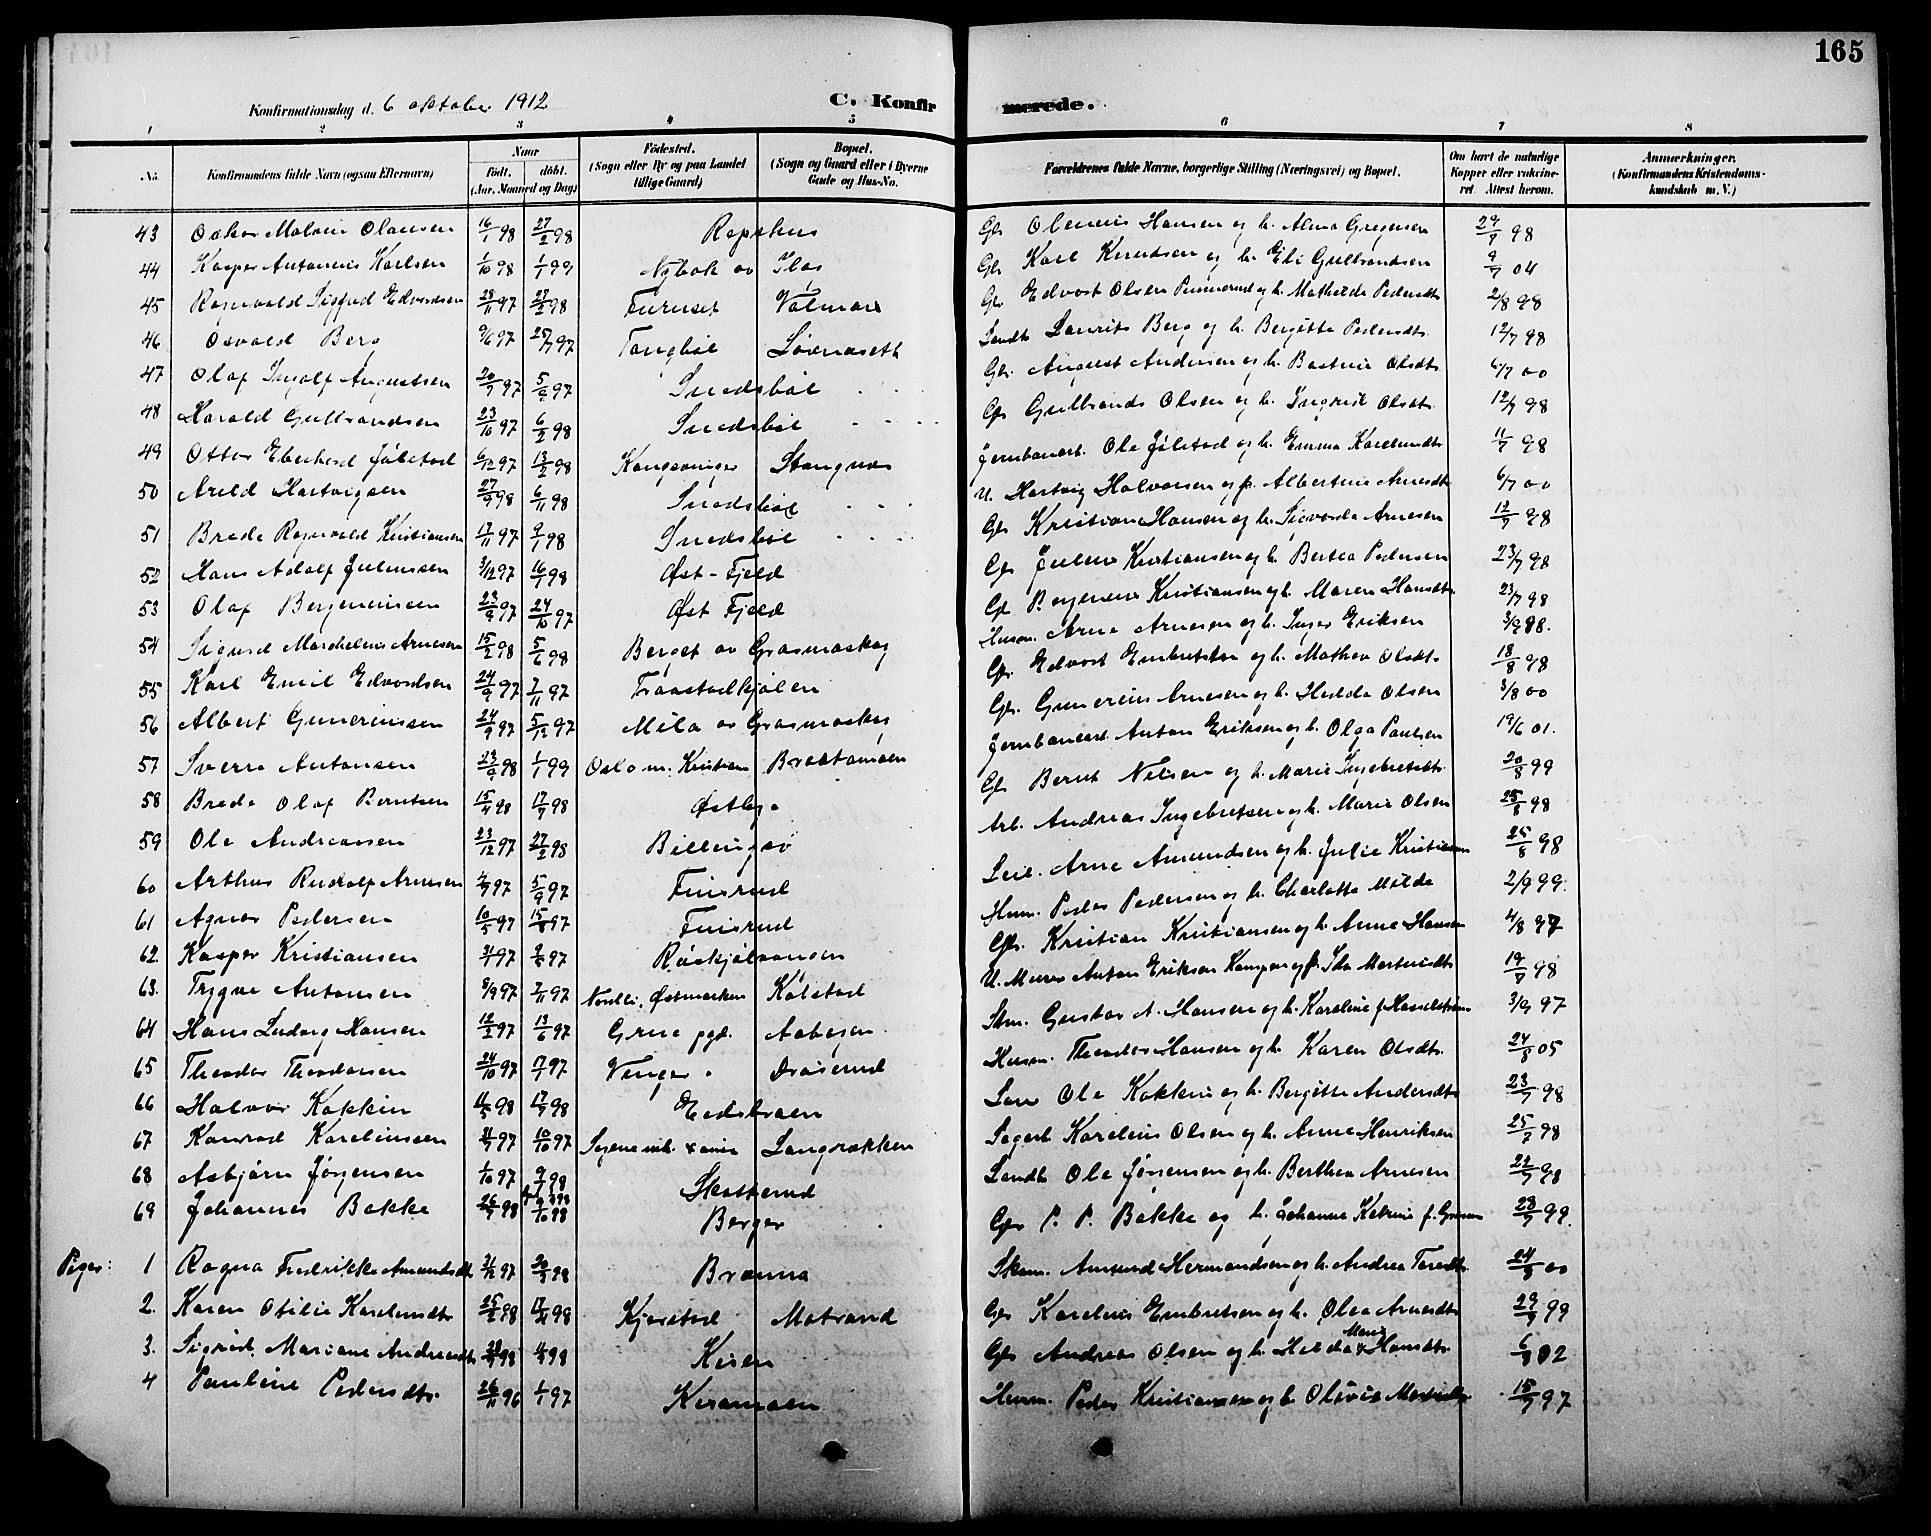 165
Konfirmationsdag d. 6 oktober 1912
C. Konfirmerede.
1 2 3 4 5 6 7 8
No. Konfirmandens fulde Navn (ogsaa Efternavn) Naar født. døbt. (Aar, Maaned og Dag) Fødested. (Sogn eller By og paa Landet tillige Gaard) Bopæl. (Sogn og Gaard eller i Byerne Gade og Hus-No. Forældrenes fulde Navne, borgerlige Stilling (Næringsvei) og Bopæl. Om havt de naturlige Kopper eller vakcineret. Attest herom. Anmærkninger. (Konfirmandens Kristendomskundskab m. V.)
43 Oskar Malvin Olausen 16/1 98 27/2 98 Gbr Hansen og h. Alma Gregersen 29/7 98
44 Kasper Antonius Karlsen 1/10 98 1/1 99 Nybak av Karl Knudsen og h. Eli Gulbrandsen 9/7 04
45 Ragnvald Sigfred Edvardsen 28/11 97 27/2 98 Furuset Edvart Olsen og h. Mathilde Pedersdtr 2/8 98
46 Osvald Berg 9/6 97 25/7 97 Tangbøl Løvenseth Landh Laurits Berg og h. Bergitte Pedersdtr. 12/7 98
47 Olaf Ingolf Augustsen 20/7 97 5/9 97 Snedsbøl Gbr. August Andersen og h. Bastine Olsdtr 6/7 00
48 Harald Gulbrandsen 23/10 97 6/2 98 Snedsbøl Gbr Gulbrands Olsen og h. Ingrid Olsdtr. 12/7 98
49 Ottar Eberhard Jølstad 6/12 97 13/2 98 Kongsvinger Jernbanearb. Ole Jølstad og h. Emma Karelsusdtr 11/7 98
50 Arild Hartvigsen 27/9 98 6/11 98 Snedsbøl U. Hartvig Halvorsen og p. Albertine Arnesdtr 6/7 00
51 Brede Ragnvald Kristiansen 17/11 97 9/1 98 Snedsbøl Gbr Kristian Hansen og h. Sigvarda Arnesen 12/7 98
52 Hans Adolf Juliussen 3/12 97 16/1 98 Øst-Fjeld Gbr Julius Kristiansen og h. Bertea Pedersen 23/7 98
53 Olaf Bergeniussen 23/9 97 24/10 97 Øst Fjeld Gbr Bergenius Kristiansen og h. Maren Hansdtr 23/7 98
54 Sigurd Marchelius Arnesen 15/2 98 5/6 98 Berget av Grasmoskog Husm. Arne Arnesen og h. Inger Eriksen 3/9 98.
55 Karl Emil Edvardsen 24/9 97 7/11 97 Traastadkjølen Gbr. Edvart Embretsen og h. Mathea Olsdtr 18/8 98
56 Albert Gunereiussen 24/9 97 5/12 97 Mila av Grasmoskog Gbr. Gunereius Arnesen og h. Hulda Olsen 3/8 00
57 Sverre Antonsen 23/9 98 1/1 99 Oslo m. Kristiania Braatamoen Jernbanearb. Anton Eriksen og h. Olga Paulsen 19/6 01.
58 Brede Olaf Berntsen 15/4 98 17/7 98 Østbye Gbr Bernt Nilsen og h. Marie Ingebretsdtr 20/8 99
59 Ole Andreassen 23/12 97 27/2 98 Arb. Andreas Ingebretsen og h. Marie Olsen 25/8 98
60 Arthur Rudolf Arnesen 4/7 97 5/9 97 Finsrud Leil. Arne Amundsen og h. Julie Kristiansen 25/8 98
61 Agnar Pedersen 10/5 97 15/8 97 Finsrud Husm. Peder Pedersen og h. Charlotte Milde 2/9 99.
62 Kasper Kristiansen Gbr. Kristian Kristiansen og h. Anne Hansen 4/8 97
63. Trygve Antonsen 8/9 97 7/11 97 Østmarken Kølstad U. Murer Anton Eriksen Kampen og p. Ida Martinsdtr 19/7 98
64 Hans Ludvig Hansen 12/2 97 13/6 97 Grue pgd. Aabogen Skm. Gustav A. Hansen og h. Karoline f. 3/9 97
65 Theodor Theodorsen 24/10 97 Vinger Husm. Theodor Hansen og h. Karen Olsdtr. 24/8 05
66 Halvor Kokkin 11/5 98 17/7 98 Eidsbraaten Ole Kokkin og h. Bergitte Andersdtr 23/7 98
67 Konrad Kareliussen 10/10 97 Langrækken Sagarb Karelius Olsen og h. Anne Henriksen 25/7 98
68 Asbjørn Jørgensen 1/10 97 9/1 98 Skotterud Landh Ole Jørgensen og h. Berthea Arnesen 22/7 98
69 Johannes Bakke 26/7 98 9/10 98 Berger Gbr P. P. Bakke og h. Johanne Katrine f. 23/7 99.
Piger: 1 Ragna Fredrikke Amundsdtr 31/12 97 Brænna Skom. Amund Hermandsen og h. Andrea Taresdtr 24/8 00
2. Karen Otilie Kareliusdtr 17/4 98 Kjerstad Matrand Gbr Karelius Embretsen og h. Olea Arnesdtr 29/7 99
3. Sigrid Mariane Andreasdtr Keren Gbr Andreas Olsen og h. Hilda Marie Hansdtr. 6/8 02
4 Pauline Pedersdtr. 26/11 96 1/1 97 Keramoen Husm. Peder Kristiansen og h. Olivia 15/7 97